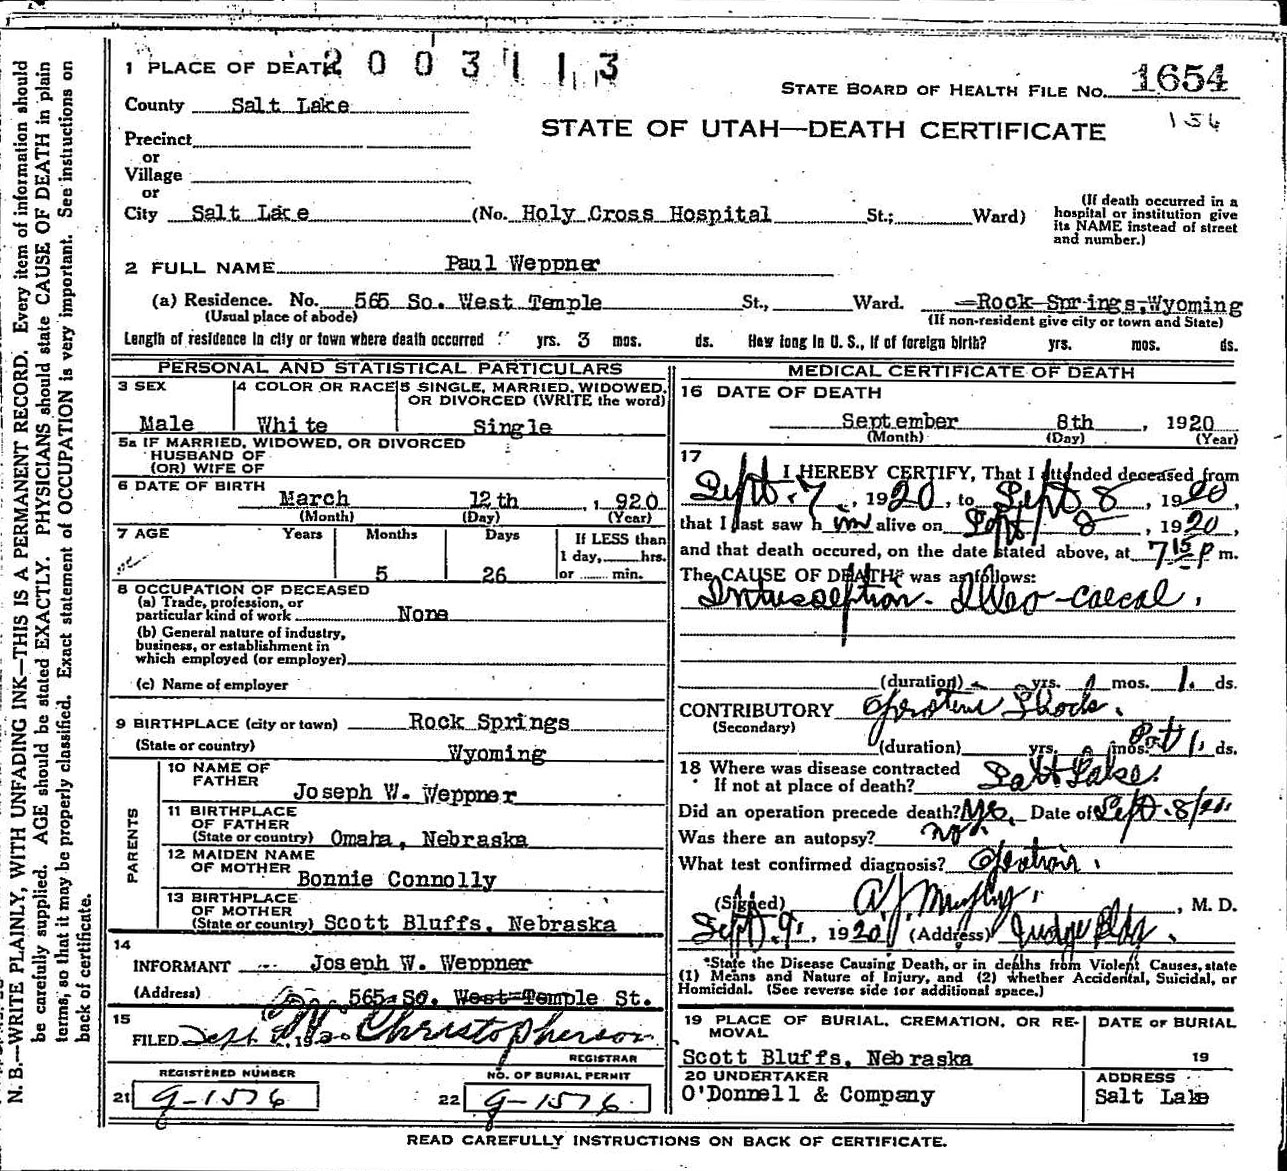 1 PLACE OF DEATH 2003113
STATE BOARD OF HEALTH FILE NO. 1654
156
County Salt Lake
STATE OF UTAH—DEATH CERTIFICATE
Precinct
or
Village
or
City Salt Lake (No. Holy Cross Hospital St.; Ward)
(If death occurred in a
hospital or institution give
its NAME instead of street
and number.)
2 FULL NAME Paul Weppner
(a) Residence. No. 565 So. West Temple St., Ward. Rock Springs, Wyoming
(Usual place of abode) (If non-resident give city or town and State)
Length of residence in city or town where death occurred yrs. 3 mos. ds. How long in U. S., if of foreign birth? yrs. mos. ds.
PERSONAL AND STATISTICAL PARTICULARS
3 SEX Male
4 COLOR OR RACE White
5 SINGLE, MARRIED, WIDOWED,
OR DIVORCED (WRITE the word)
Single
5a IF MARRIED, WIDOWED, OR DIVORCED
HUSBAND OF
(OR) WIFE OF
6 DATE OF BIRTH March 12th , 1920
(Month) (Day) (Year)
7 AGE Years Months Days If LESS than
1 day, hrs.
5 26 or min.
8 OCCUPATION OF DECEASED
(a) Trade, profession, or
particular kind of work None
(b) General nature of industry,
business, or establishment in
which employed (or employer)
(c) Name of employer
9 BIRTHPLACE (city or town) Rock Springs
(State or country) Wyoming
PARENTS
10 NAME OF
FATHER Joseph W. Weppner
11 BIRTHPLACE
OF FATHER
(State or country) Omaha, Nebraska
12 MAIDEN NAME
OF MOTHER Bonnie Connolly
13 BIRTHPLACE
OF MOTHER
(State or country) Scott Bluffs, Nebraska
14
INFORMANT Joseph W. Weppner
(Address) 565 So. West Temple St.
15
FILED Sept 1920 Christopherson
REGISTRAR
REGISTERED NUMBER NO. OF BURIAL PERMIT
21 G-1576 22 G-1576
MEDICAL CERTIFICATE OF DEATH
16 DATE OF DEATH
September 8th , 1920
(Month) (Day) (Year)
17
I HEREBY CERTIFY, That I attended deceased from
Sept. 7, 1920, to Sept 8, 1920,
that I last saw him alive on Sept 8, 1920,
and that death occured, on the date stated above, at 7 15 P m.
The CAUSE OF DEATH* was as follows:
Intusseption. Illeo-caecal.
(duration) yrs. mos. 1. ds.
CONTRIBUTORY Operative Shock.
(Secondary)
(duration) yrs. mos. 1. ds.
18 Where was disease contracted
If not at place of death? Salt Lake.
Did an operation precede death? Yes. Date of Sept. 8/20
Was there an autopsy? no.
What test confirmed diagnosis? Operation.
(Signed) A J Murphy, M. D.
Sept. 9, 1920 (Address) Judge Bldg.
*State the Disease Causing Death, or in deaths from Violent Causes, state
(1) Means and Nature of Injury, and (2) whether Accidental, Suicidal, or
Homicidal. (See reverse side for additional space.)
19 PLACE OF BURIAL, CREMATION, OR RE-
MOVAL
Scott Bluffs, Nebraska
DATE OF BURIAL
19
20 UNDERTAKER
O'Donnell & Company
ADDRESS
Salt Lake
READ CAREFULLY INSTRUCTIONS ON BACK OF CERTIFICATE.
N. B.—WRITE PLAINLY, WITH UNFADING INK—THIS IS A PERMANENT RECORD. Every item of information should
be carefully supplied. AGE should be stated EXACTLY. PHYSICIANS should state CAUSE OF DEATH in plain
terms, so that it may be properly classified. Exact statement of OCCUPATION is very important. See instructions on
back of certificate.